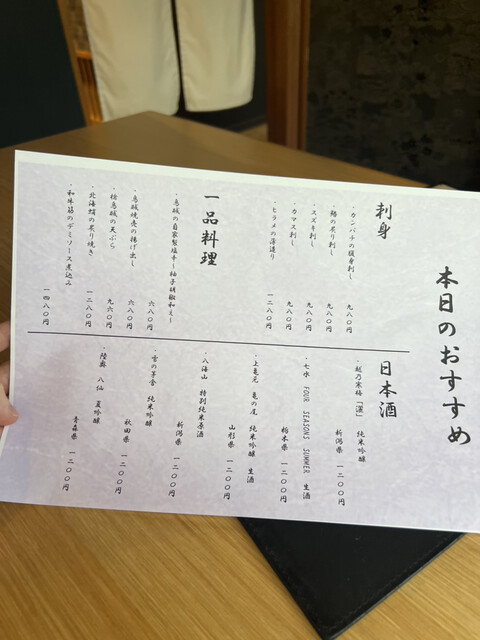 本日のおすすめ
刺身
・カンパチの腹身刺し
九八〇円
・鰆の炙り刺し
九八〇円
・スズキ刺し
九八〇円
・カマス刺し
九八〇円
・ヒラメの薄造り
一二八〇円
一品料理
・烏賊の自家製塩辛〜柚子胡椒和え〜
六八〇円
・烏賊焼売の揚げ出し
六八〇円
・桧烏賊の天ぷら
九六〇円
・北海蛸の炙り焼き
一二八〇円
・和牛筋のデミソース煮込み
一四八〇円
日本酒
・越乃寒梅「灑」 純米吟醸
新潟県 一二〇〇円
・七水 FOUR SEASONS SUMMER 生酒
栃木県 一二〇〇円
・上亀元 亀の尾 純米吟醸 生酒
山形県 一二〇〇円
・八海山 特別純米原酒
新潟県 一二〇〇円
・雪の茅舎 純米吟醸
秋田県 一二〇〇円
・陸奥 八仙 夏吟醸
青森県 一二〇〇円